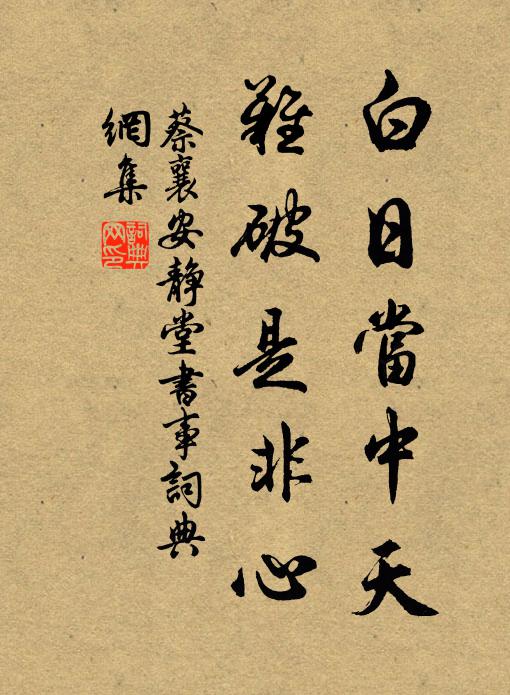 白日當中天
難破是非心
蔡襄安靜堂書事詞典
網集
詞典
网印